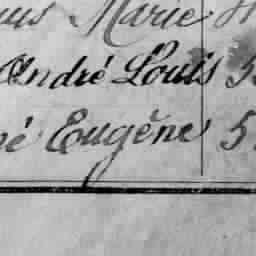 Marie
André Louis 5
Eugène 5